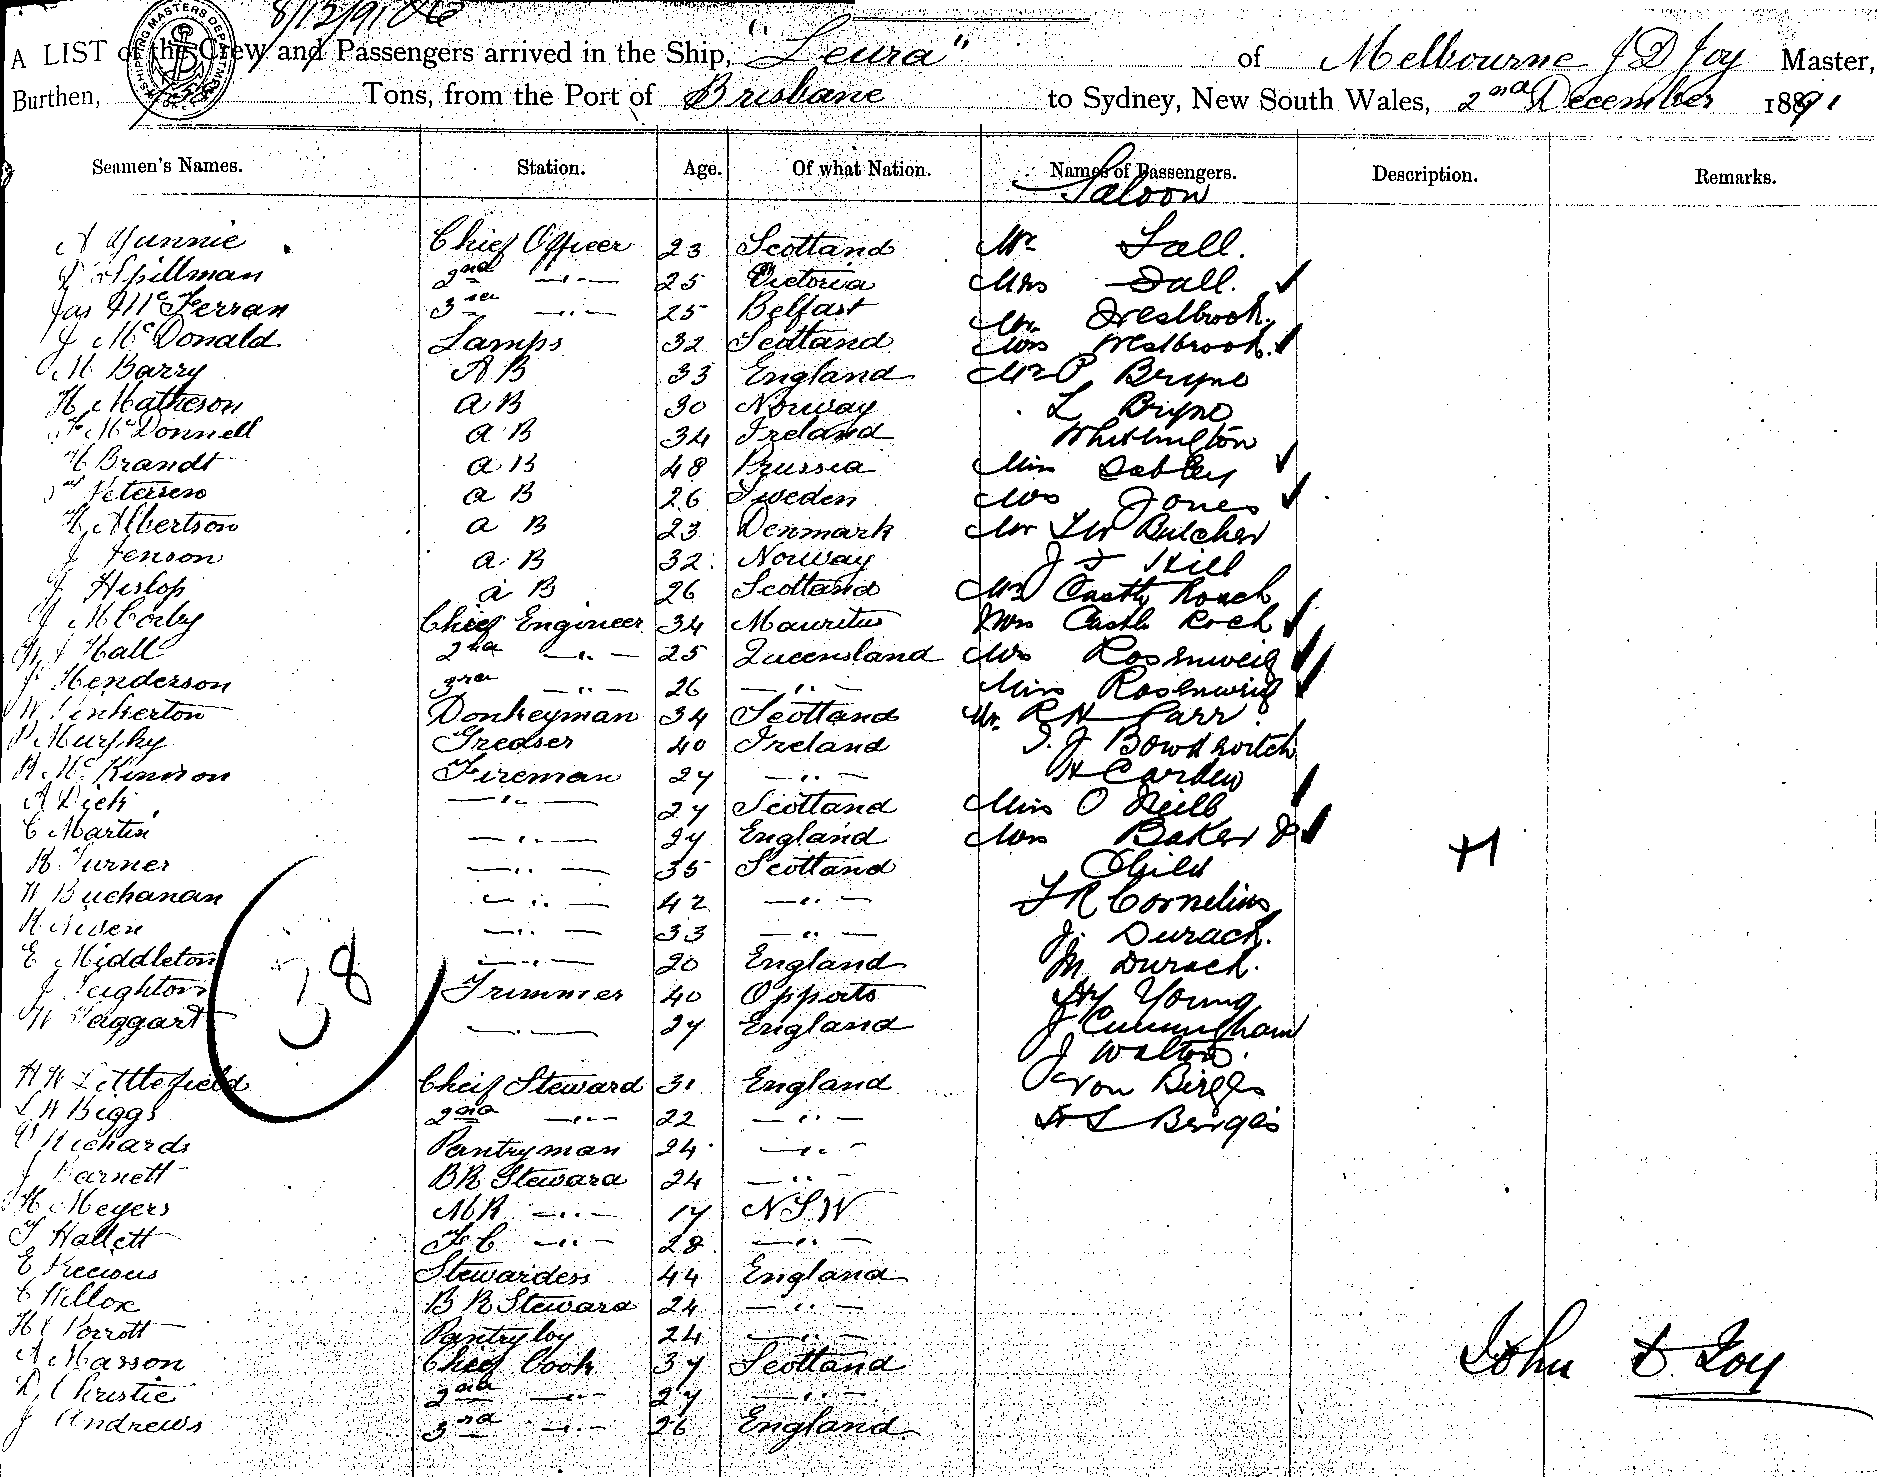 8/12/91
A LIST of the Crew and Passengers arrived in the Ship, "Leura" of Melbourne J D Joy Master,
Burthen, Tons, from the Port of Brisbane to Sydney, New South Wales, 2nd December 1891
Seamen's Names. Station. Age. Of what Nation. Names of Passengers. Description. Remarks.
Saloon
A Gunnie Chief Officer 23 Scotland Mr Fall.
Spillman 2nd —"— 25 Victoria Mrs Dall. ✓
Jas McFerran 3rd —"— 25 Belfast Mr Westbrook.
J McDonald Lamps 32 Scotland Mrs Westbrook. ✓
M Barry A B 33 England Mr P Bryne
H Matheson a B 30 Norway L Bryne
F McDonnell a B 34 Ireland Whittington
H Brandt a B 48 Prussia Miss ✓
Petersen a B 26 Sweden Mrs Jones ✓
H Albertson a B 23 Denmark Mr Butcher
J Jenson a B 32 Norway J F Hill
J Hislop a B 26 Scotland Mr Castle Roach
J McCorly Chief Engineer 34 Mauritus Mrs Castle Roch ✓
Hall 2nd —"— 25 Queensland Mrs Rosenweig ✓
J Henderson 3rd —"— 26 —"— Miss Rosenweig ✓
W Pinkerton Donkeyman 34 Scotland Mr R H Carr
P Murphy Greaser 40 Ireland Bowditch
R McKinnon Fireman 27 —"— H Carden
A Dick —"— 27 Scotland Miss O Neill ✓
C Martin —"— 27 England Mrs Baker & ✓
R Turner —"— 35 Scotland Child H
H Buchanan —"— 42 —"— F R Cornelius
H Niven —"— 33 —"— J. Durack.
E Middleton 38 —"— 20 England M Durack.
J Leighton Trimmer 40 Opporto Hy Young
W Taggart —"— 27 England J Cunningham
J Walton.
H W Littlefield Cheif Steward 31 England Von Birgls
L W Biggs 2nd —"— 22 —"—
Richards Pantryman 24 —"—
J Barnett BR Steward 24 —"—
H Meyers MR —"— 17 NSW
T Hallett F C —"— 28 —"—
E Precious Stewardess 44 England
C Willox B R Steward 24 —"—
H J Porrott Pantryboy 24 —"—
A Masson Chief Cook 37 Scotland John D. Joy
D Christie 2nd —"— 27 —"—
J Andrews 3rd —"— 26 England